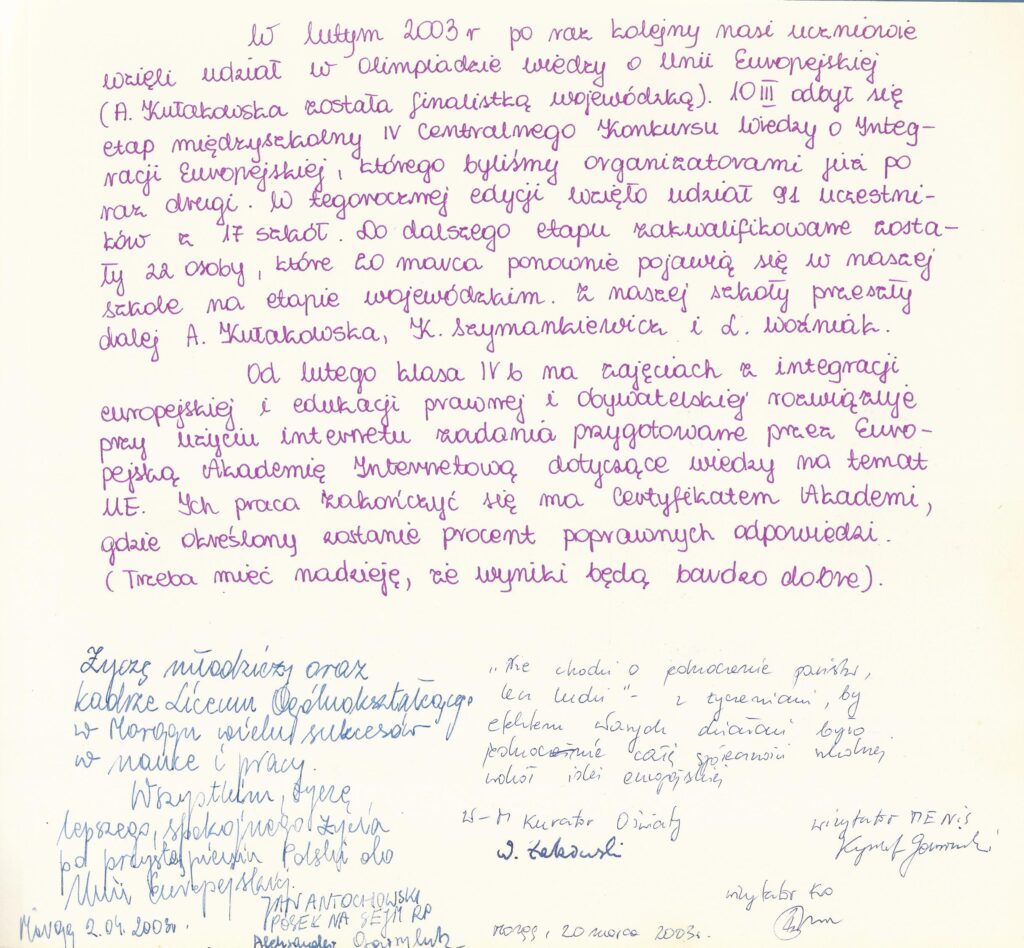 W lutym 2003 r po raz kolejny nasi uczniowie
wzięli udział w Olimpiadzie wiedzy o Unii Europejskiej
(A. Kułakowska została finalistką wojewódzką). 10 III odbył się
etap międzyszkolny IV Centralnego Konkursu Wiedzy o Integ-
racji Europejskiej, którego byliśmy organizatorami już po
raz drugi. W tegorocznej edycji wzięło udział 91 uczestni-
ków z 17 szkół. Do dalszego etapu zakwalifikowane zosta-
ły 22 osoby, które 20 marca ponownie pojawią się w naszej
szkole na etapie wojewódzkim. Z naszej szkoły przeszły
dalej A. Kułakowska, K. Szymankiewicz i Ł. Woźniak.
Od lutego klasa IV b na zajęciach z integracji
europejskiej i edukacji prawnej i obywatelskiej rozwiązuje
przy użyciu internetu zadania przygotowane przez Euro-
pejską Akademię Internetową dotyczące wiedzy na temat
UE. Ich praca zakończyć się ma Certyfikatem Akademi,
gdzie określony zostanie procent poprawnych odpowiedzi.
(Trzeba mieć nadzieję, że wyniki będą bardzo dobre).
Życzę młodzieży oraz
kadrze Liceum Ogólnokształcącego
w Morągu wielu sukcesów
w nauce i pracy.
Wszystkim, życzę
lepszego, spokojnego życia
po przystąpieniu Polski do
Unii Europejskiej.
JAN ANTOCHOWSKI
POSEŁ NA SEJM RP
Aleksander
Morąg 2.04.2003r.
"Nie chodzi o jednoczenie państw,
lecz ludzi" - z życzeniami, by
efektem własnych działań było
jednoczenie całej społeczności szkolnej
wokół idei europejskiej
W-M Kurator Oświaty
wizytator MENiS
wizytator KO
Morąg, 20 marca 2003r.